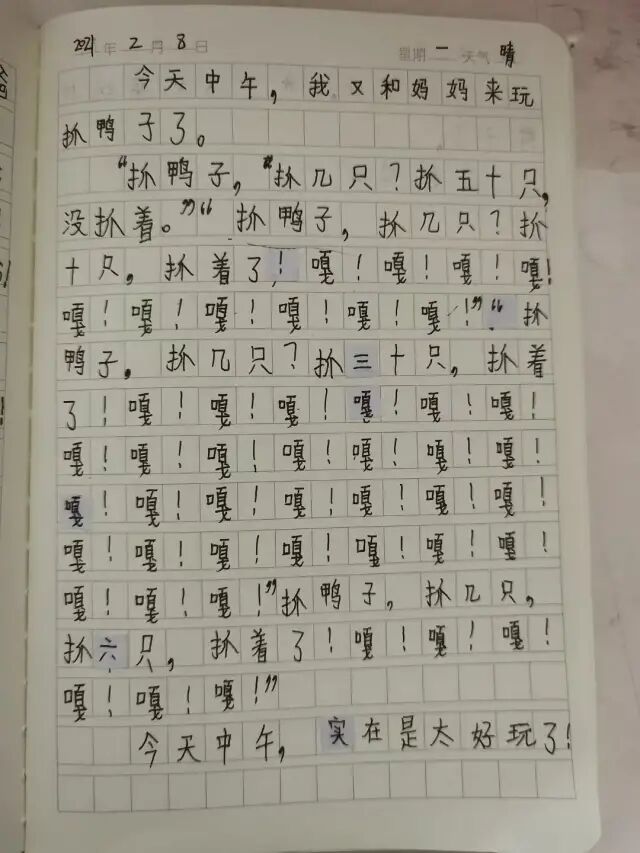 2021年2月8日 星期一 天气晴
今天中午，我又和妈妈来玩
抓鸭子了。
“抓鸭子，“抓几只？抓五十只，
没抓着。”“抓鸭子，抓几只？抓
十只，抓着了！嘎！嘎！嘎！嘎！
嘎！嘎！嘎！嘎！嘎！嘎！”“抓
鸭子，抓几只？抓三十只，抓着
了！嘎！嘎！嘎！嘎！嘎！嘎！
嘎！嘎！嘎！嘎！嘎！嘎！嘎！
嘎！嘎！嘎！嘎！嘎！嘎！嘎！
嘎！嘎！嘎！嘎！嘎！嘎！嘎！
嘎！嘎！嘎！”抓鸭子，抓几只，
抓六只，抓着了！嘎！嘎！嘎！
嘎！嘎！嘎！”
今天中午，实在是太好玩了！